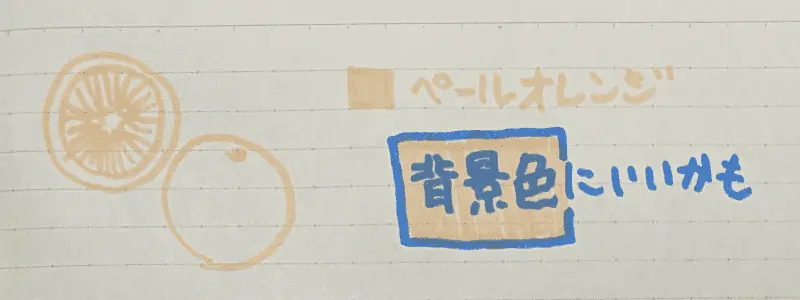 ペールオレンジ
背景色にいいかも